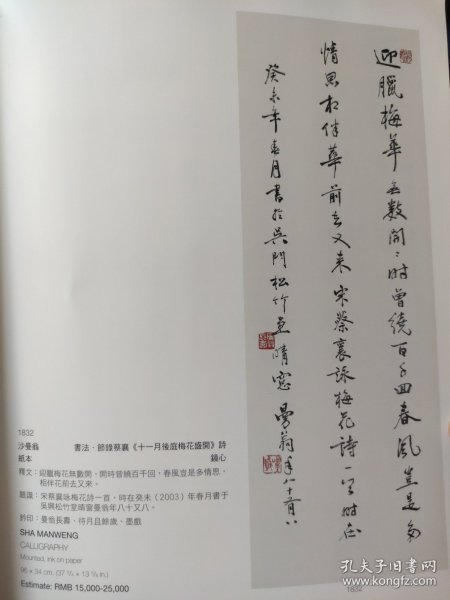 迎臘梅華无數開〻時曾繞百千回春風豈是多
情思相伴華前去又来宋蔡襄詠梅花詩一首時在
癸未年春月書於吳門松竹堂晴窓曼翁年八十有八
1832
沙曼翁 書法·節錄蔡襄《十一月後庭梅花盛開》詩
紙本 鏡心
釋文：迎臘梅花無數開，開時曾繞百千回，春風豈是多情思，
相伴花前去又來。
題識：宋蔡襄詠梅花詩一首，時在癸未（2003）年春月書于
吳興松竹堂晴窗曼翁年八十又八。
鈐印：曼翁長壽、待月且餘歲、墨戲
SHA MANWENG
CALLIGRAPHY
Mounted, ink on paper
96 × 34 cm. (37 ¾ × 13 ⅜ in.)
Estimate: RMB 15,000-25,000
1832
孔夫子旧书网